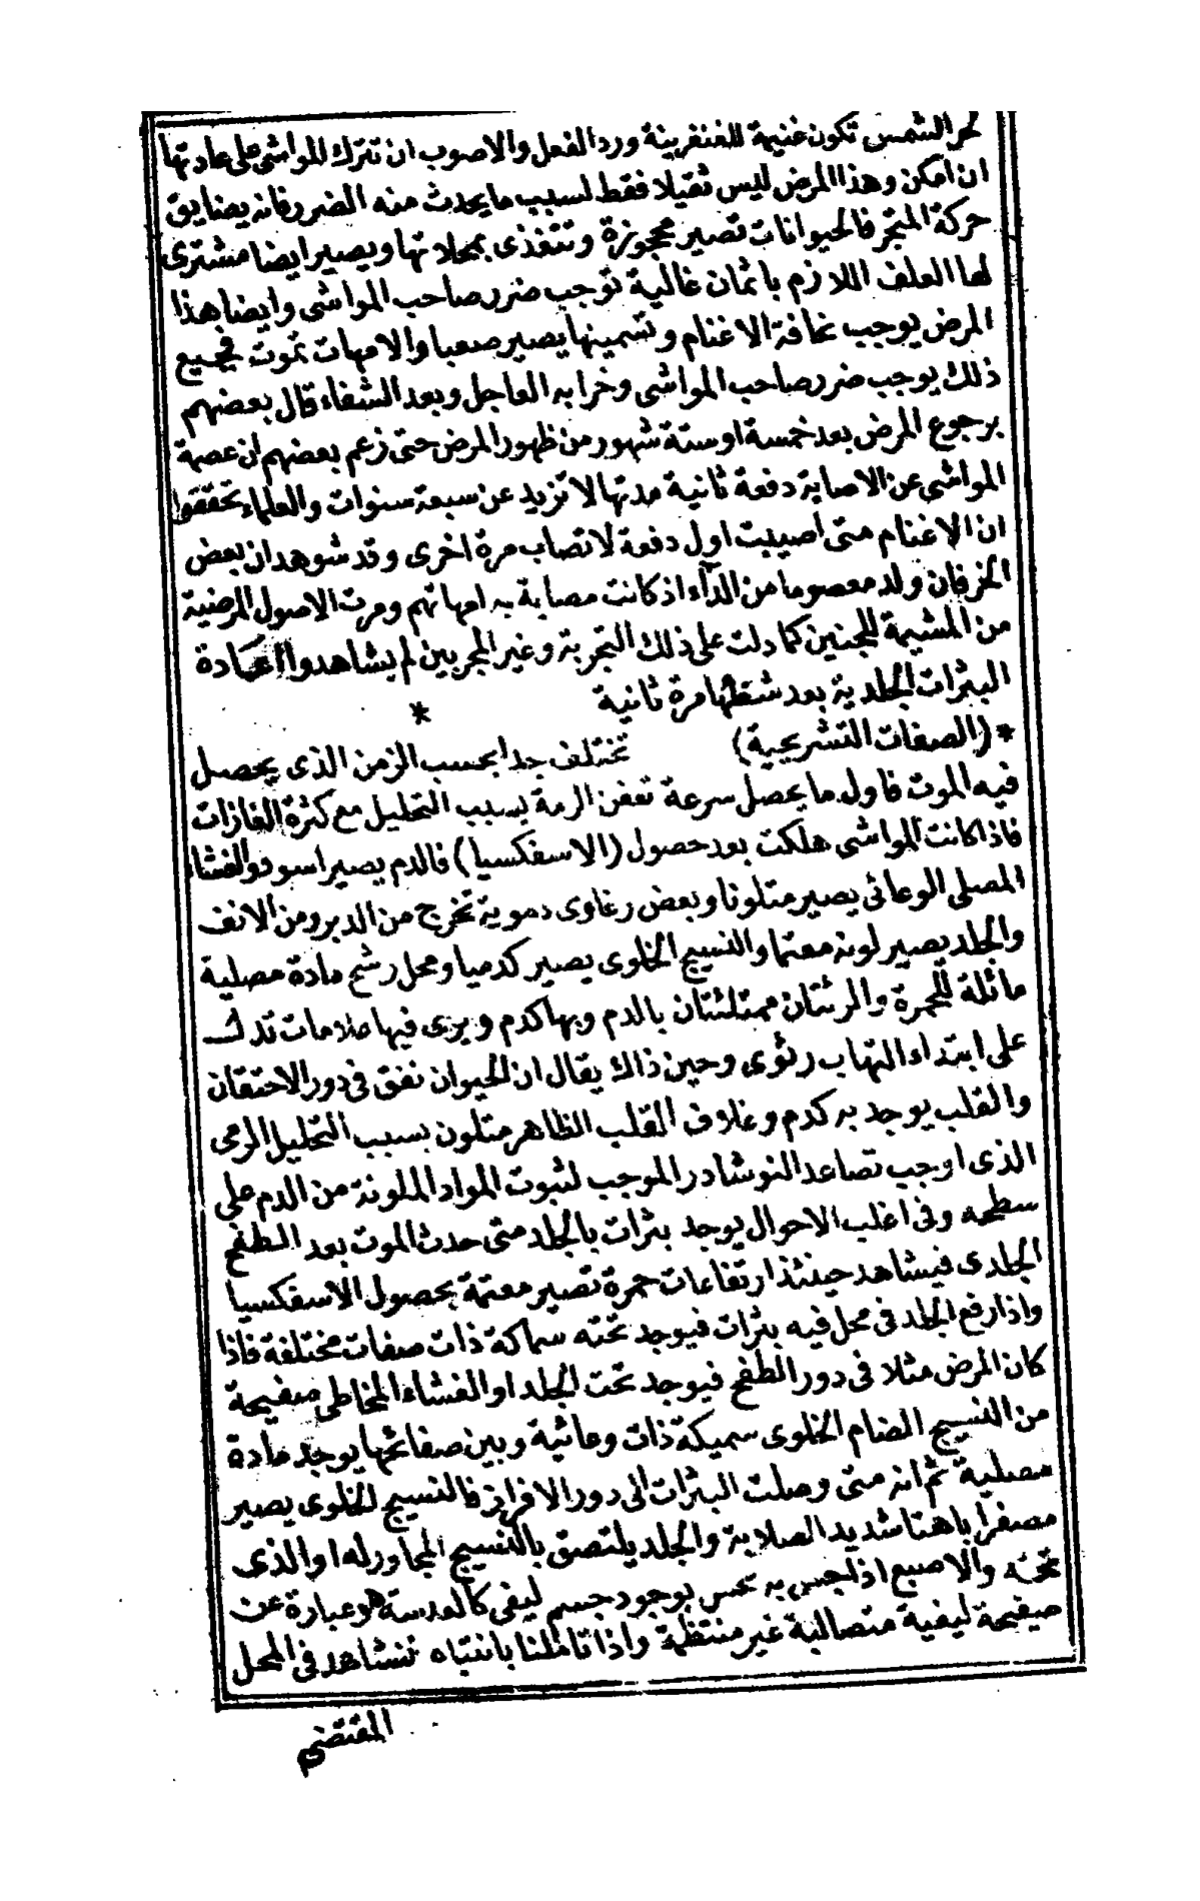 لحر الشمس تكون غنيمة للغنغرينة ورد الفعل والاصوب ان تترك المواشى على عادتها
ان امكن وهذا المرض ليس ثقيلا فقط لسبب ما يحدث منه الضرر فانه يضايق
حركة المتجر فالحيوانات تصير محجوزة وتتغذى بمحلاتها ويصير ايضا مشترى
لها العلف اللازم باثمان غالية توجب ضرر صاحب المواشى وايضا هذا
المرض يوجب نحافة الاغنام وتسمينها يصير صعبا والامهات تموت فجميع
ذلك يوجب ضرر صاحب المواشى وخرابه العاجل وبعد الشفاء قال بعضهم
برجوع المرض بعد خمسة اوستة شهور من ظهور المرض حتى زعم بعضهم ان عصمة
المواشى عن الاصابة دفعة ثانية مدتها لا تزيد عن سبعة سنوات والعلماء تحققوا
ان الاغنام متى اصيبت اول دفعة لا تصاب مرة اخرى وقد شوهد ان بعض
الخرفان ولد معصوما من الدآء اذ كانت مصابة به امهاتهم ومرت الاصول المرضية
من المشيمة للجنين كما دلت على ذلك التجربة وغير المجربين لم يشاهدوا اعادة
البثرات الجلدية بعد شفائها مرة ثانية *
* (الصفات التشريحية) تختلف جدا بحسب الزمن الذى يحصل
فيه الموت فاول ما يحصل سرعة تعفن الرمة بسبب التحليل مع كثرة الغازات
فاذا كانت المواشى هلكت بعد حصول (الاسفكسيا) فالدم يصير اسود والغشاء
المصلى الوعائى يصير متلونا وبعض رغاوى دموية تخرج من الدبر ومن الانف
والجلد يصير لونه معتما والنسيج الخلوى يصير كدميا ومحل رشح مادة مصلية
مائلة للحمرة والرئتان ممتلئتان بالدم وبها كدم ويرى فيها علامات تدل
على ابتداء التهاب رئوى وحين ذاك يقال ان الحيوان نفق فى دور الاحتقان
والقلب يوجد به كدم وغلاف القلب الظاهر متلون بسبب التحليل الرمى
الذى اوجب تصاعد النوشادر الموجب لثبوت المواد الملونة من الدم على
سطحه وفى اغلب الاحوال يوجد بثرات بالجلد متى حدث الموت بعد الطفح
الجلدى فيشاهد حينئذ ارتفاعات حمرة تصير معتمة بحصول الاسفكسيا
واذا رفع الجلد فى محل فيه بثرات فيوجد تحته سماكة ذات صفات مختلفة فاذا
كان المرض مثلا فى دور الطفح فيوجد تحت الجلد او الغشاء المخاطى صفيحة
من النسيج الضام الخلوى سميكة ذات وعائية وبين صفائحها يوجد مادة
مصلية ثم انه متى وصلت البثرات الى دور الافراز فالنسيج الخلوى يصير
مصفرا باهتا شديد الصلابة والجلد يلتصق بالنسيج المجاور له او الذى
تحته والاصبع اذا جس به تحس بوجود جسم ليفى كالعدسة هو عبارة عن
صفيحة ليفية متصالبة غير منتظمة واذا تاملنا بانتباه تشاهد فى المحل
المقتضى